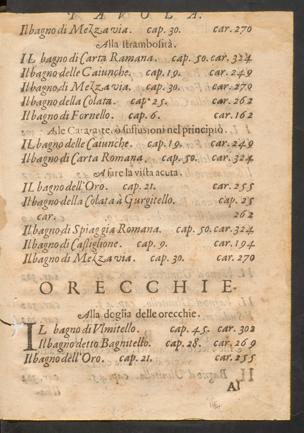 TAVOLA.
Il bagno di Mezza via. cap. 30. car. 270
Alla strambosità.
IL bagno di Carta Ramana. cap. 50. car. 324
Il bagno delle Caiunche. cap. 19. car. 249
Il bagno di Mezza via. cap. 30. car. 270
Il bagno della Colata. cap. 25. car. 262
Il bagno di Fornello. cap. 6. car. 162
Ale Cataratte, ò suffusioni nel principiò.
IL bagno delle Caiunche. cap. 19. car. 249
Il bagno di Carta Romana. cap. 50. car. 324
A fare la vista acuta.
IL bagno dell'Oro. cap. 21. car. 255
Il bagno della Colata à Gurgitello. cap. 25
car. 262
Il bagno di Spiaggia Romana. cap. 50. car. 324
Il bagno di Castiglione. cap. 9. car. 194
Il bagno di Mezza via. cap. 30. car. 270
ORECCHIE.
Alla doglia delle orecchie.
IL bagno di Vlmitello. cap. 45. car. 302
Il bagno detto Bagnitello. cap. 28. car. 269
Il bagno dell'Oro. cap. 21. car. 255
Al